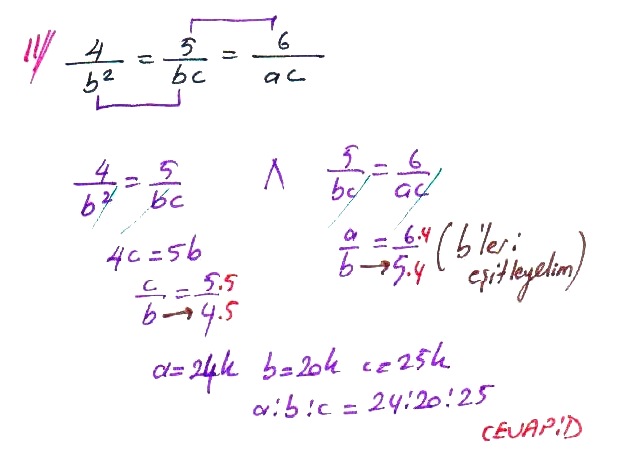 11/ 4/b² = 5/bc = 6/ac
4/b² = 5/bc ∧ 5/bc = 6/ac
4c = 5b
a/b → = 6.4/5.4 (b'leri eşitleyelim)
c/b → = 5.5/4.5
a = 24k b = 20k c = 25k
a:b:c = 24:20:25
CEVAP:D